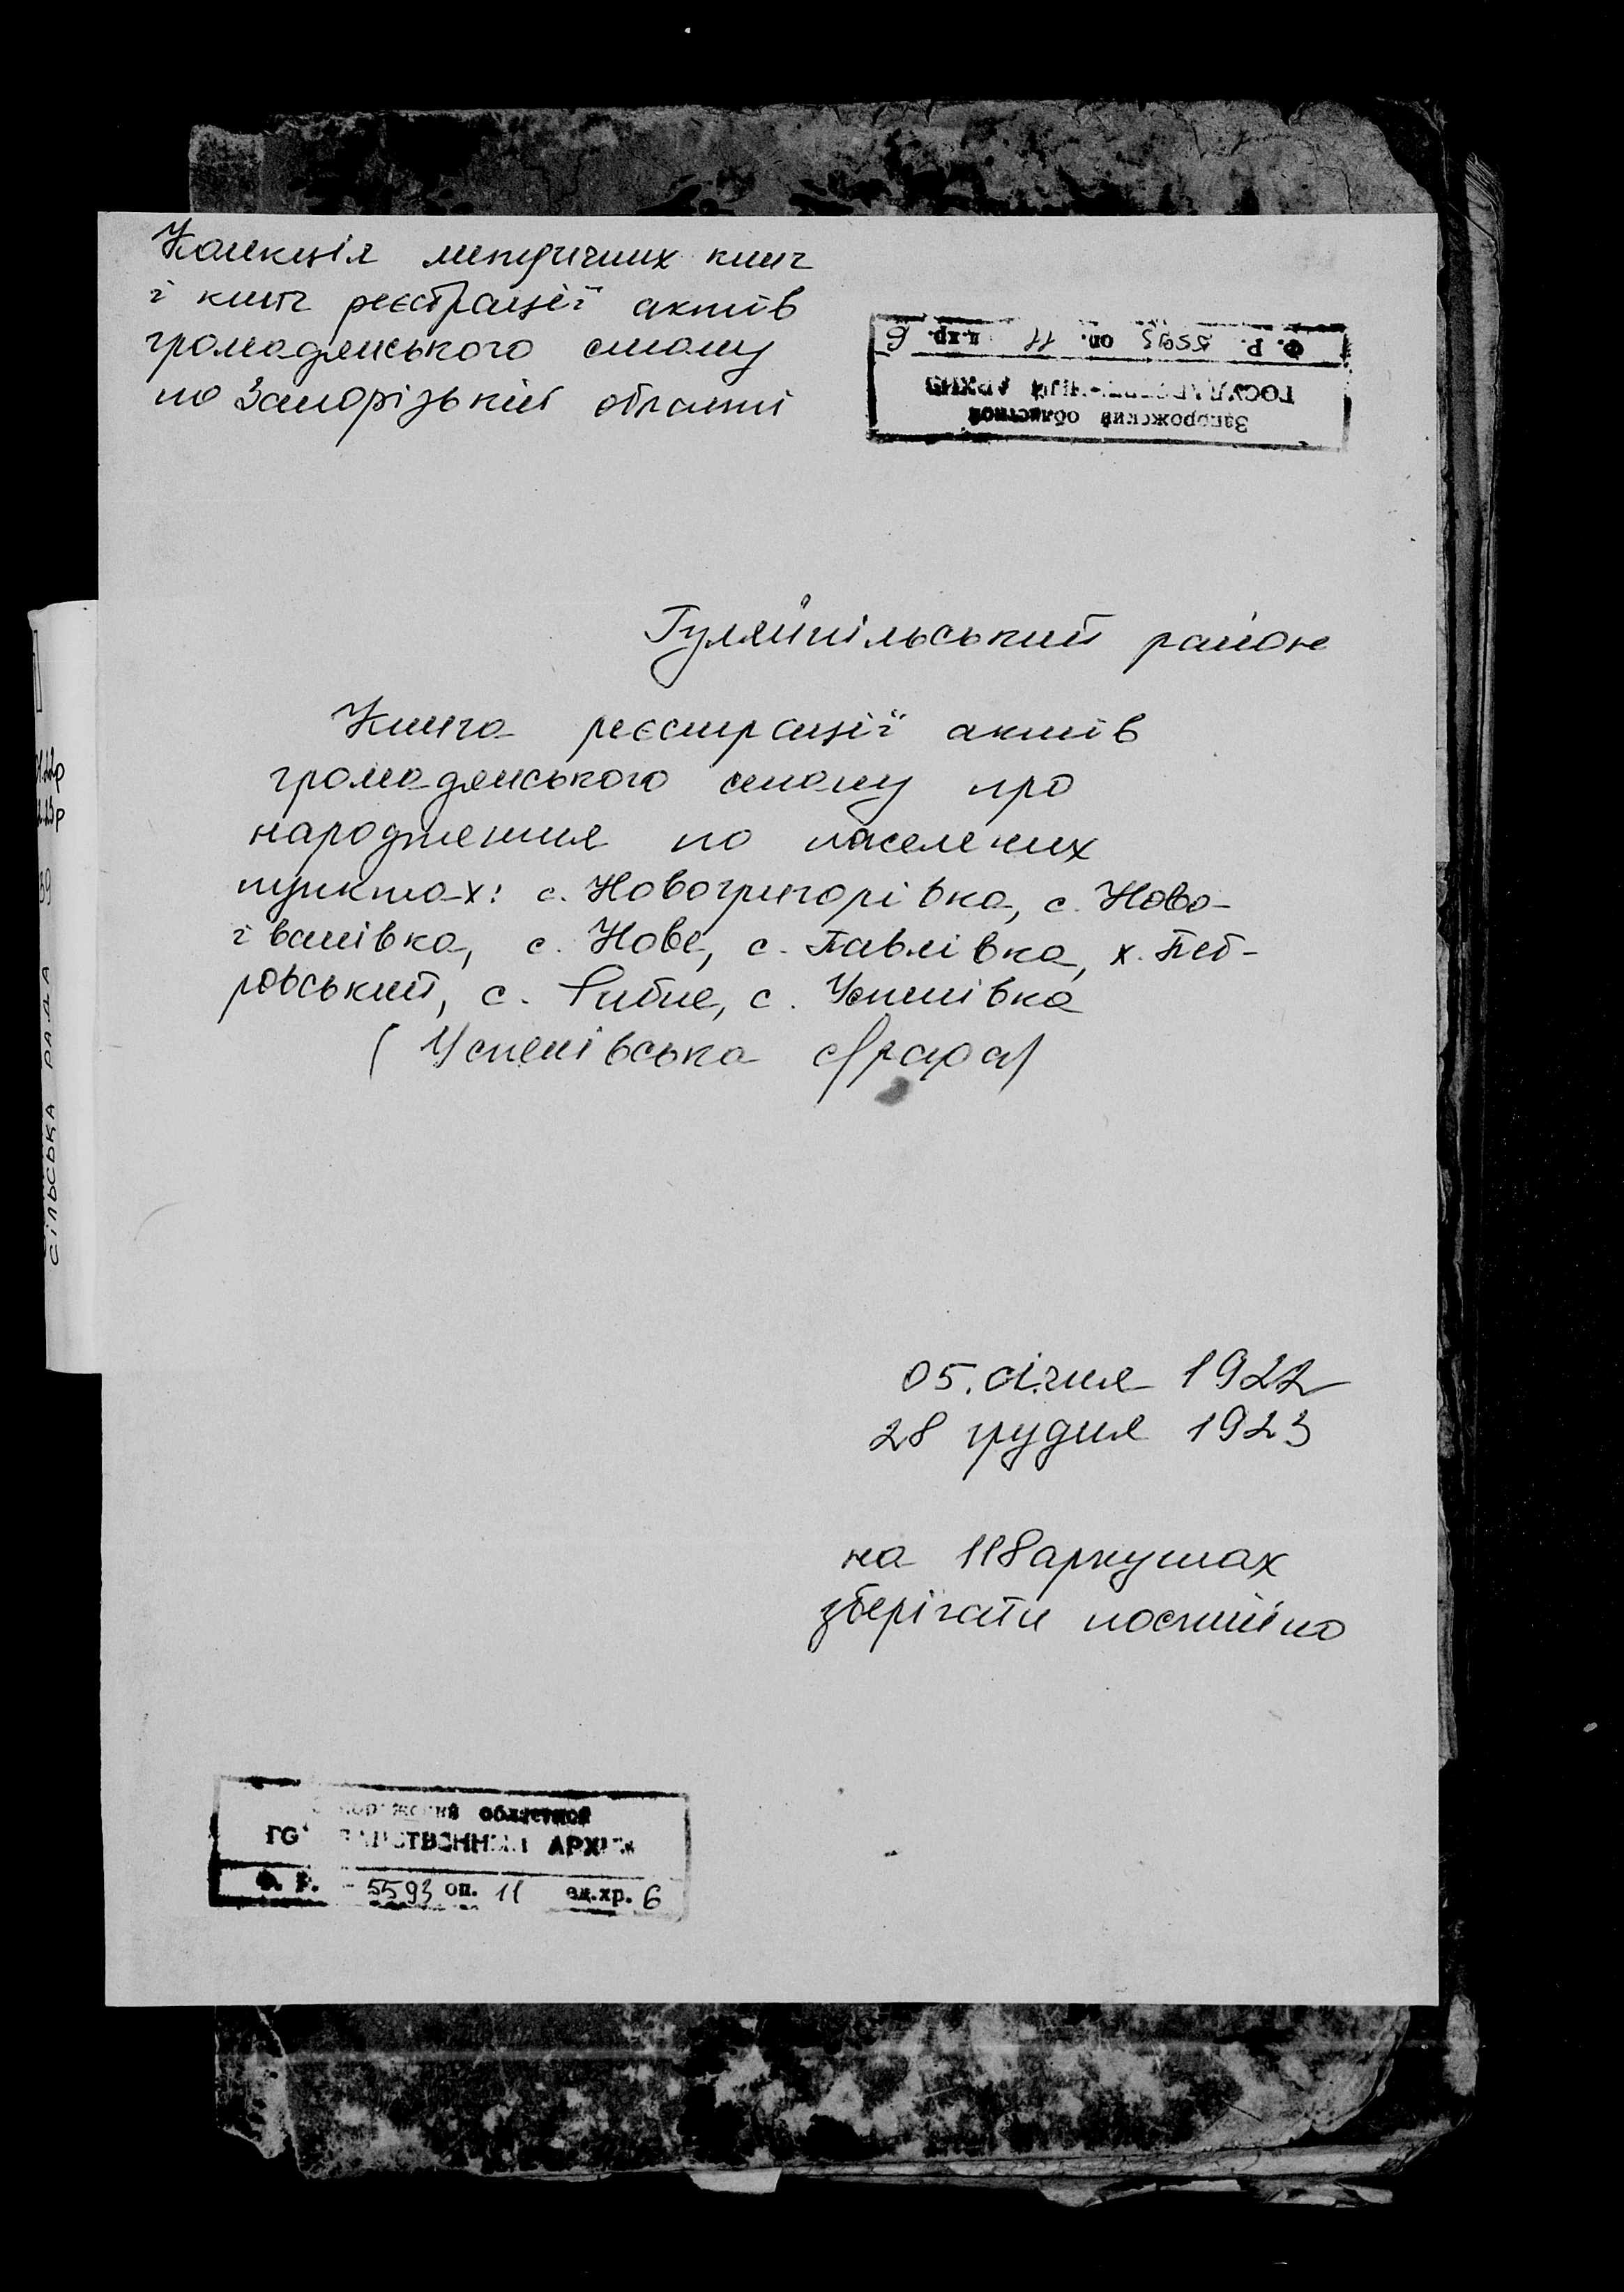 Колекція метричних книг
і книг реєстрації актів
громадянського стану
по Запорізькій області
Запорожский областной
ГОСУДАРСТВЕННЫЙ АРХИВ
Ф. Р. 5593 оп. 11 ед.хр. 6
Гуляйпільський район
Книга реєстрації актів
громадянського стану про
народження по населених
пунктах: с. Новогригорівка, с. Ново-
іванівка, с. Нове, с. Павлівка, х. Пет-
ровський, с. Рибне, с. Успенівка
(Успенівська с/рада)
СІЛЬСЬКА РАДА 39
05. січня 1922
28 грудня 1923
на 118 аркушах
зберігати постійно
Запорожский областной
ГОСУДАРСТВЕННЫЙ АРХИВ
Ф. Р. - 5593 оп. 11 ед.хр. 6